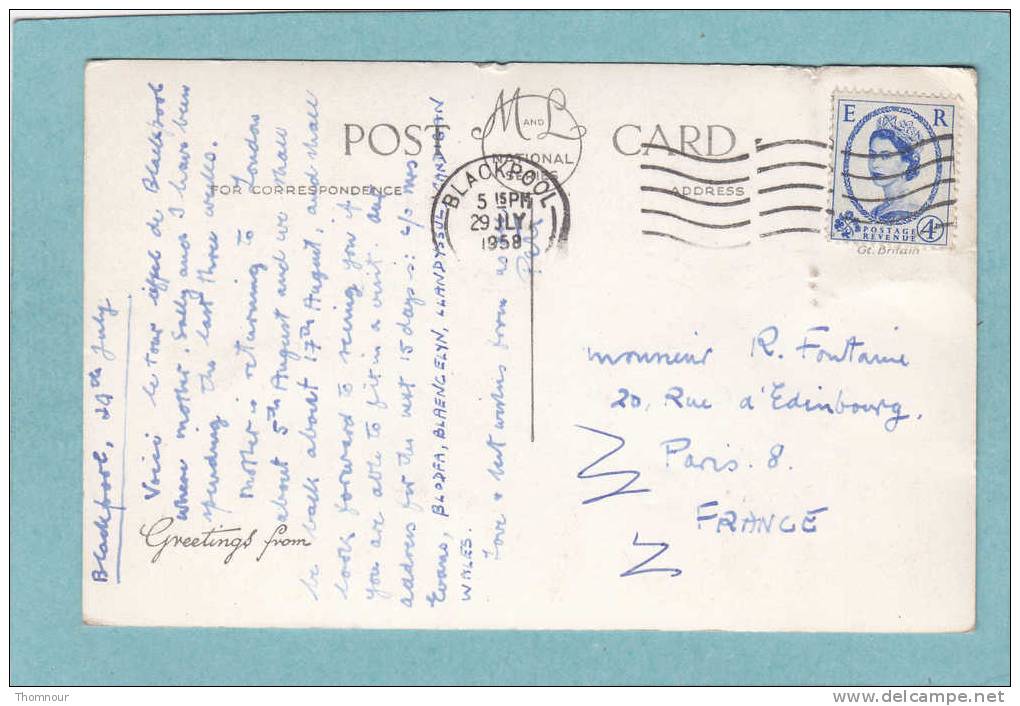 POST CARD
M AND L
NATIONAL
SERIES
FOR CORRESPONDENCE
ADDRESS
BLACKPOOL
5 15 PM
29 JLY
1958
E R
POSTAGE
REVENUE
4D
Gt. Britain
Greetings from
Blackpool, 29th July
Voici le tour Eiffel de Blackpool
where mother, Sally and I have been
spending the last three weeks.
Mother is returning to London
about 5th August and we shall
be back about 17th August, and shall
look forward to seeing you if
you are able to fit in a visit. Our
address for the next 15 days is: c/o Mrs
Evans, BLODFA, BLAENGELYN, LLANDYSSUL, CARDIGAN
WALES.
Love & best wishes from us
Monsieur R. Fontaine
20, Rue d'Edinbourg,
Paris. 8.
FRANCE
Thomnour
http://www.delcampe.net